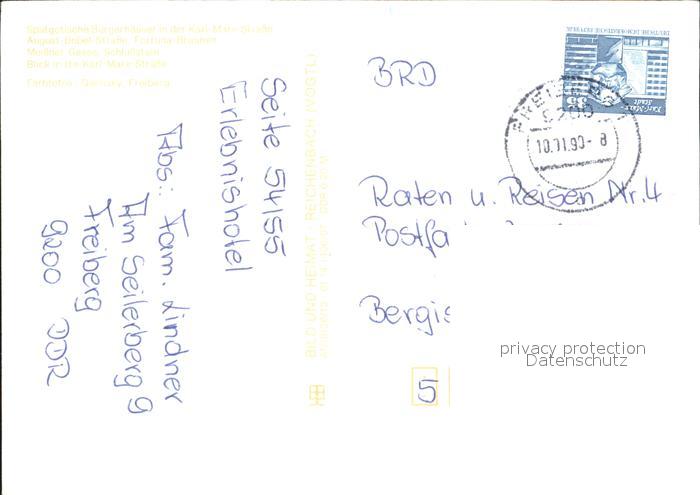 Spätgotische Bürgerhäuser in der Karl-Marx-Straße
August-Bebel-Straße, Fortuna-Brunnen
Meißner Gasse, Schlußstein
Blick in die Karl-Marx-Straße
Farbfotos: Darmsky, Freiberg
Seite 54/55
Erlebnishotel
Abs.: Fam. Lindner
Am Seilerberg 9
Freiberg
9200 DDR
BILD UND HEIMAT · REICHENBACH (VOGTL)
BRD
DEUTSCHE DEMOKRATISCHE REPUBLIK
Karl-Marx-
Stadt
35
FREIBERG
9200
10.11.90- 8
Raten u. Reisen Nr. 4
Postfa
Bergis
5
privacy protection
Datenschutz